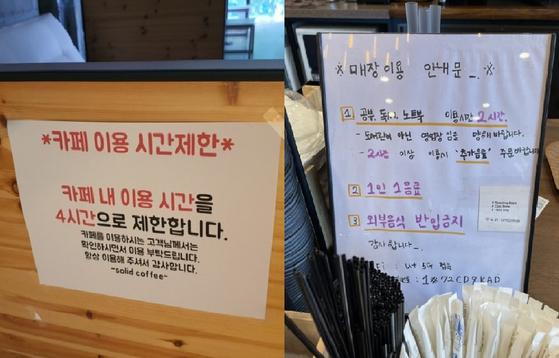 *카페 이용 시간제한*
카페 내 이용 시간을
4시간으로 제한합니다.
카페을 이용하시는 고객님께서는
확인하시면서 이용 부탁드립니다.
항상 이용해 주셔서 감사합니다.
~solid coffee~
※ 매장이용 안내문 ※
1 공부, 노트북 이용시간 2시간.
아닌 영업장 임을 바랍니다.
- 2시간 이상 이용시 "추가음료" 주문바랍니다.
2 1인 1음료
3 외부음식 반입금지
감사합니다.
: 1272CD9KAD